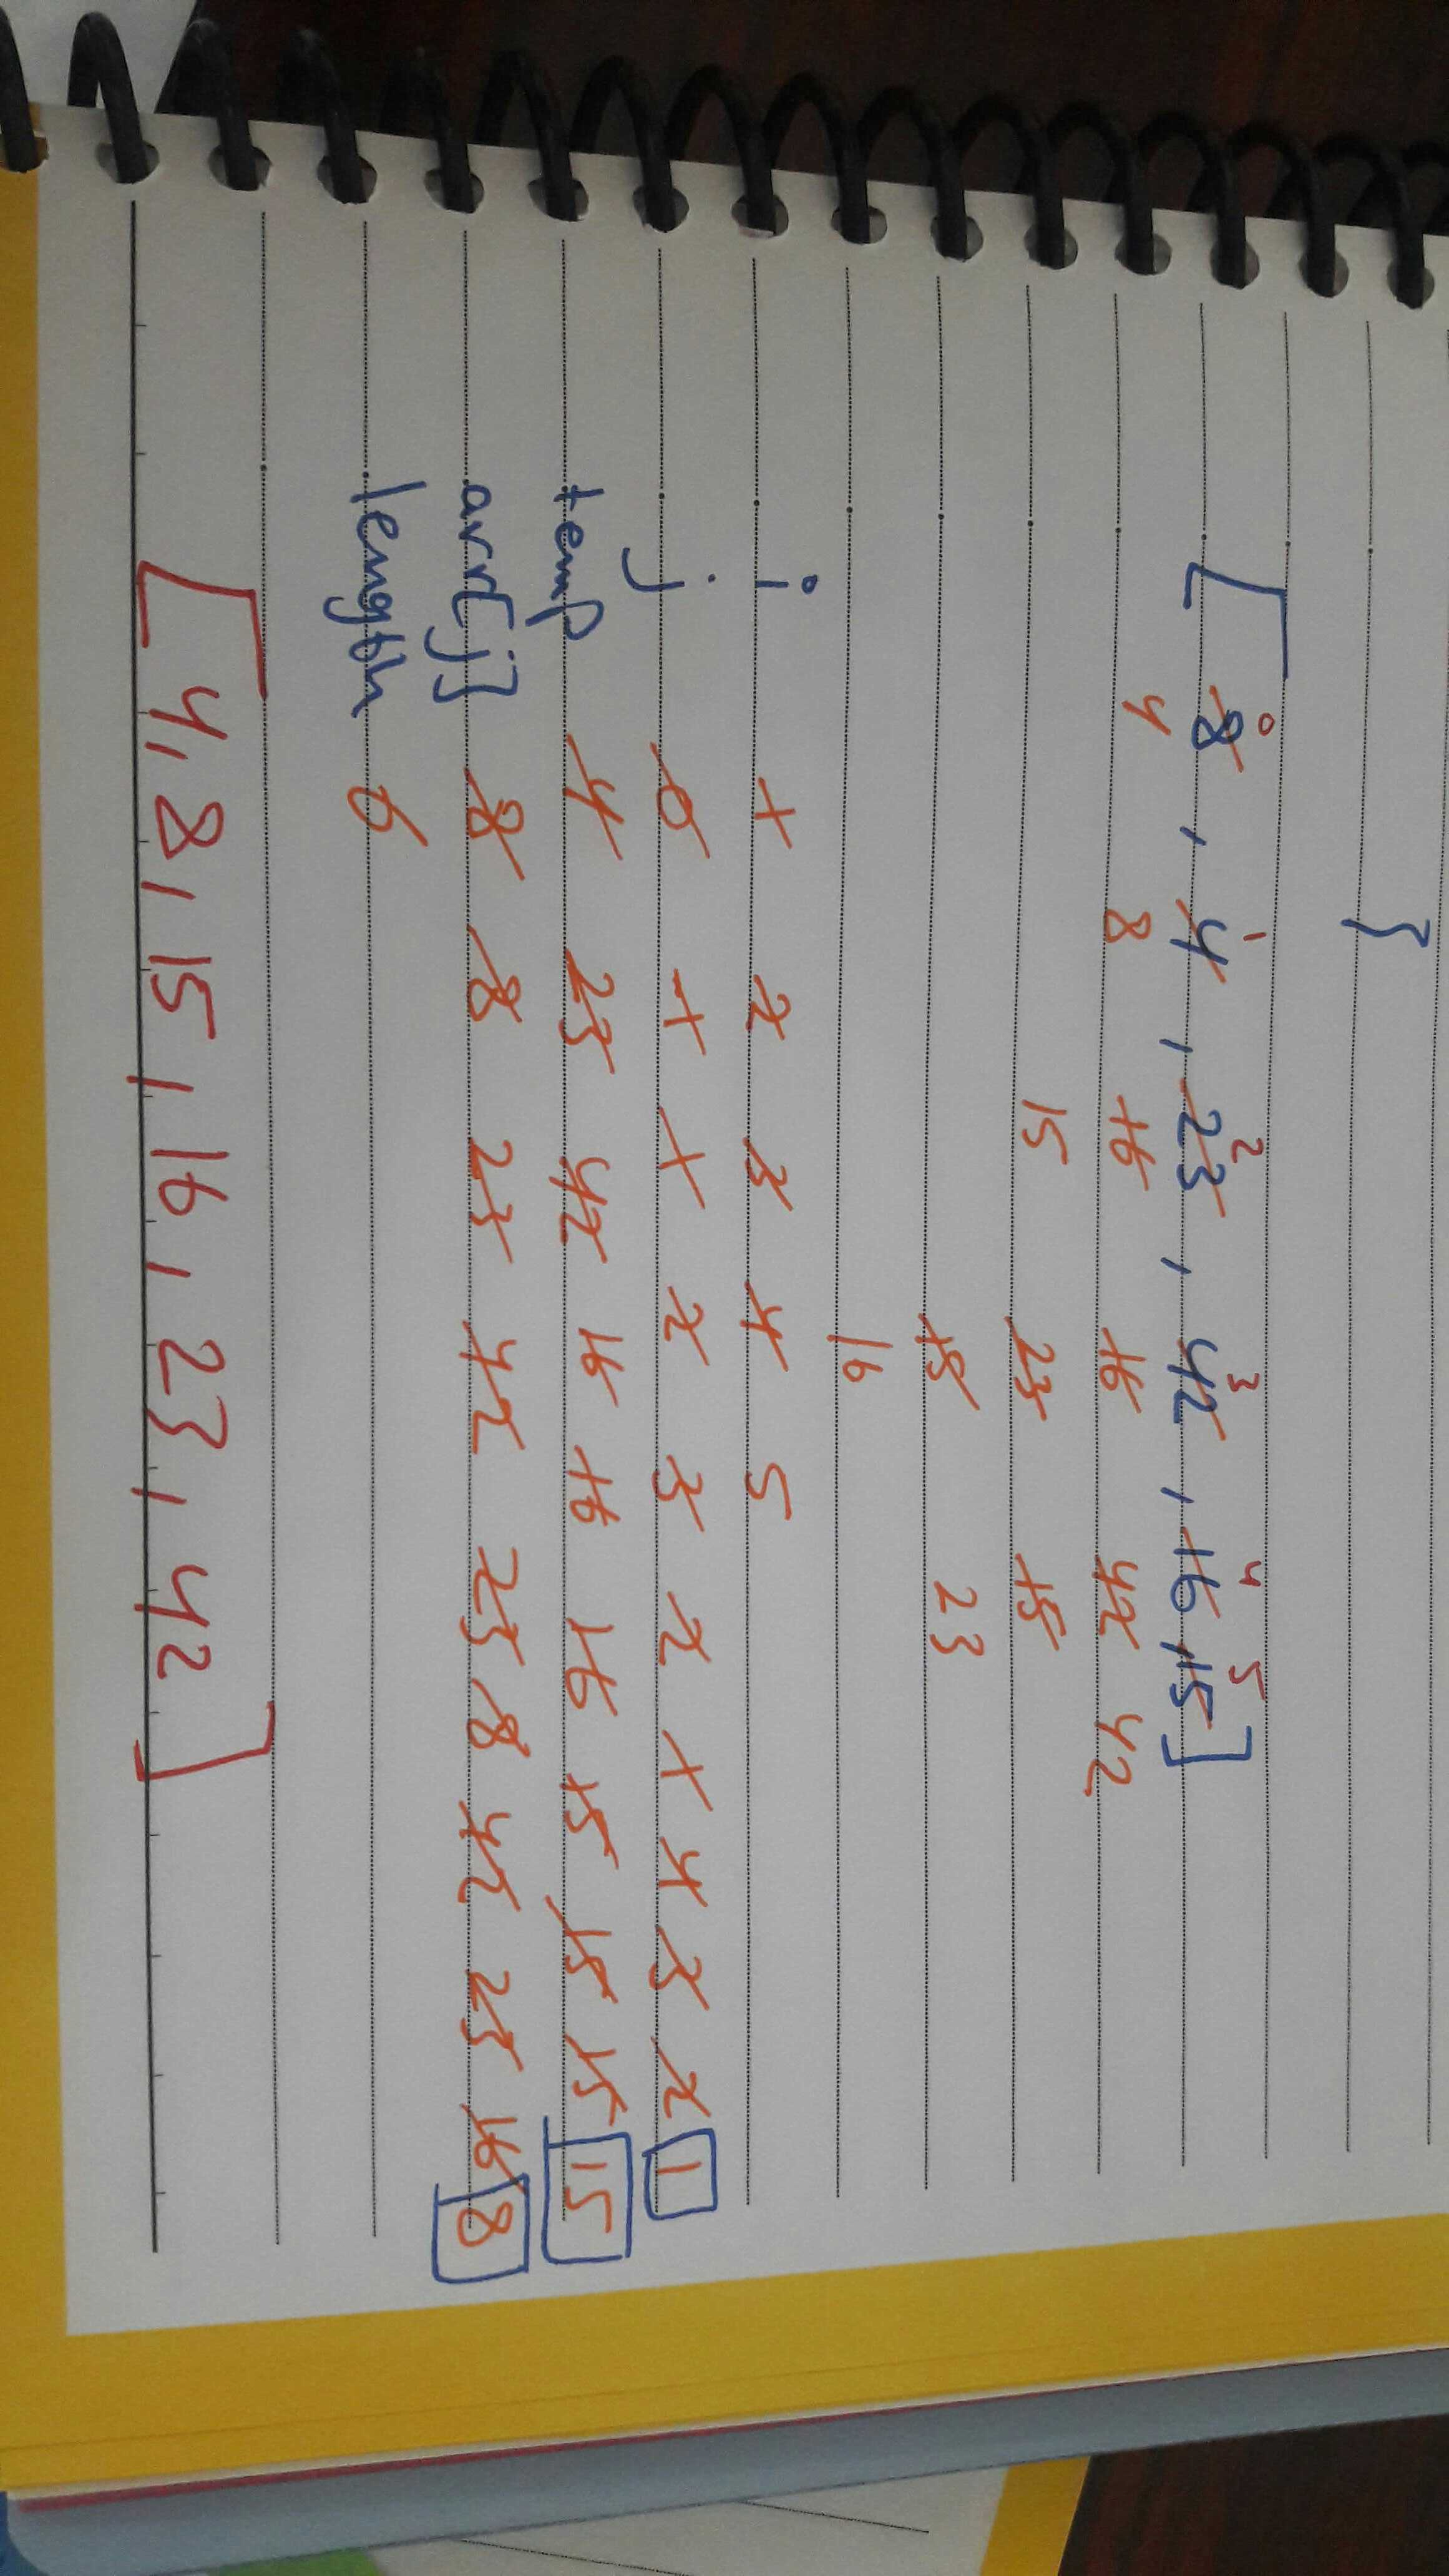 }
0 1 2 3 4 5
[ 8 , 4 , 23 , 42 , 16 , 15 ]
4 8 16 16 42 42
15 23 15
15 23
16
i 1 2 3 4 5
j 0 1 1 2 3 2 1 4 3 2 1
temp 4 23 42 16 16 16 15 15 15 15
arr[j] 8 8 23 42 23 8 42 23 16 8
length 6
[ 4, 8, 15, 16, 23, 42 ]